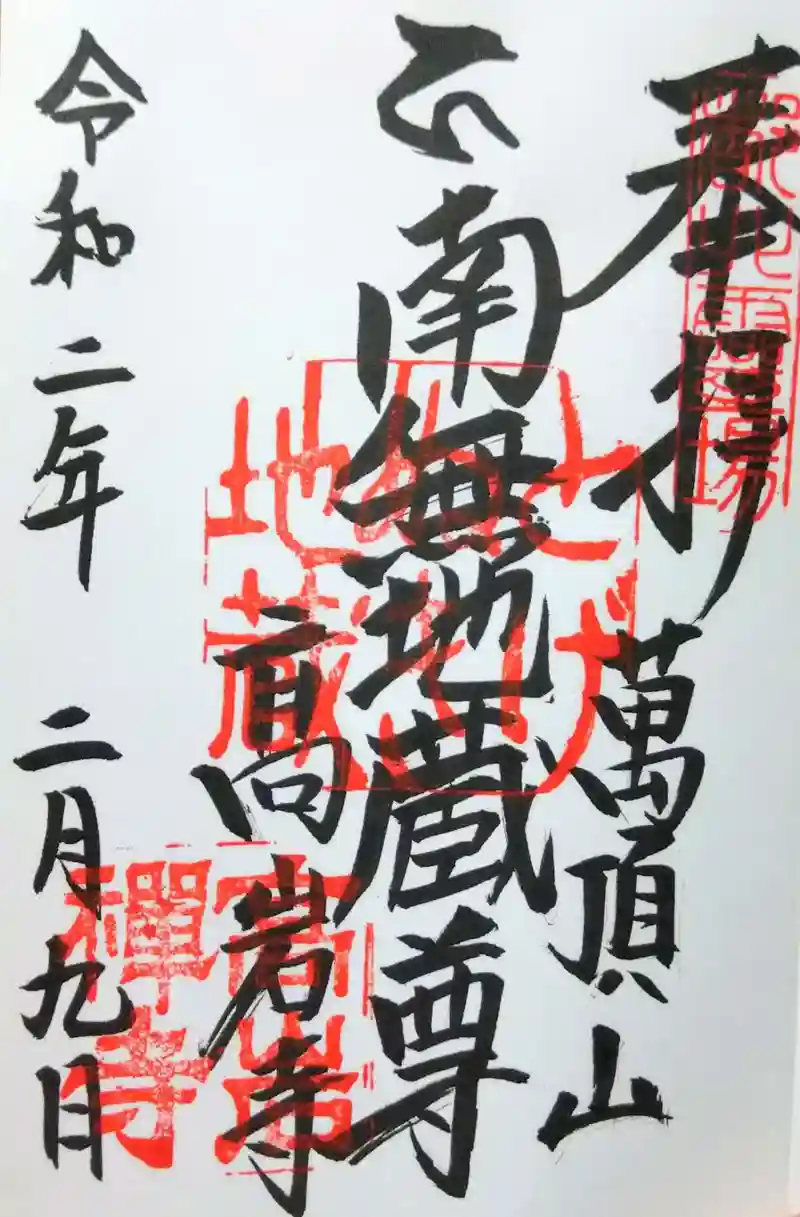 奉拝
萬頂山
南無地蔵尊
高岩寺
令和二年 二月九日
霊場
とげ
ぬき
地蔵
高岩
禪寺